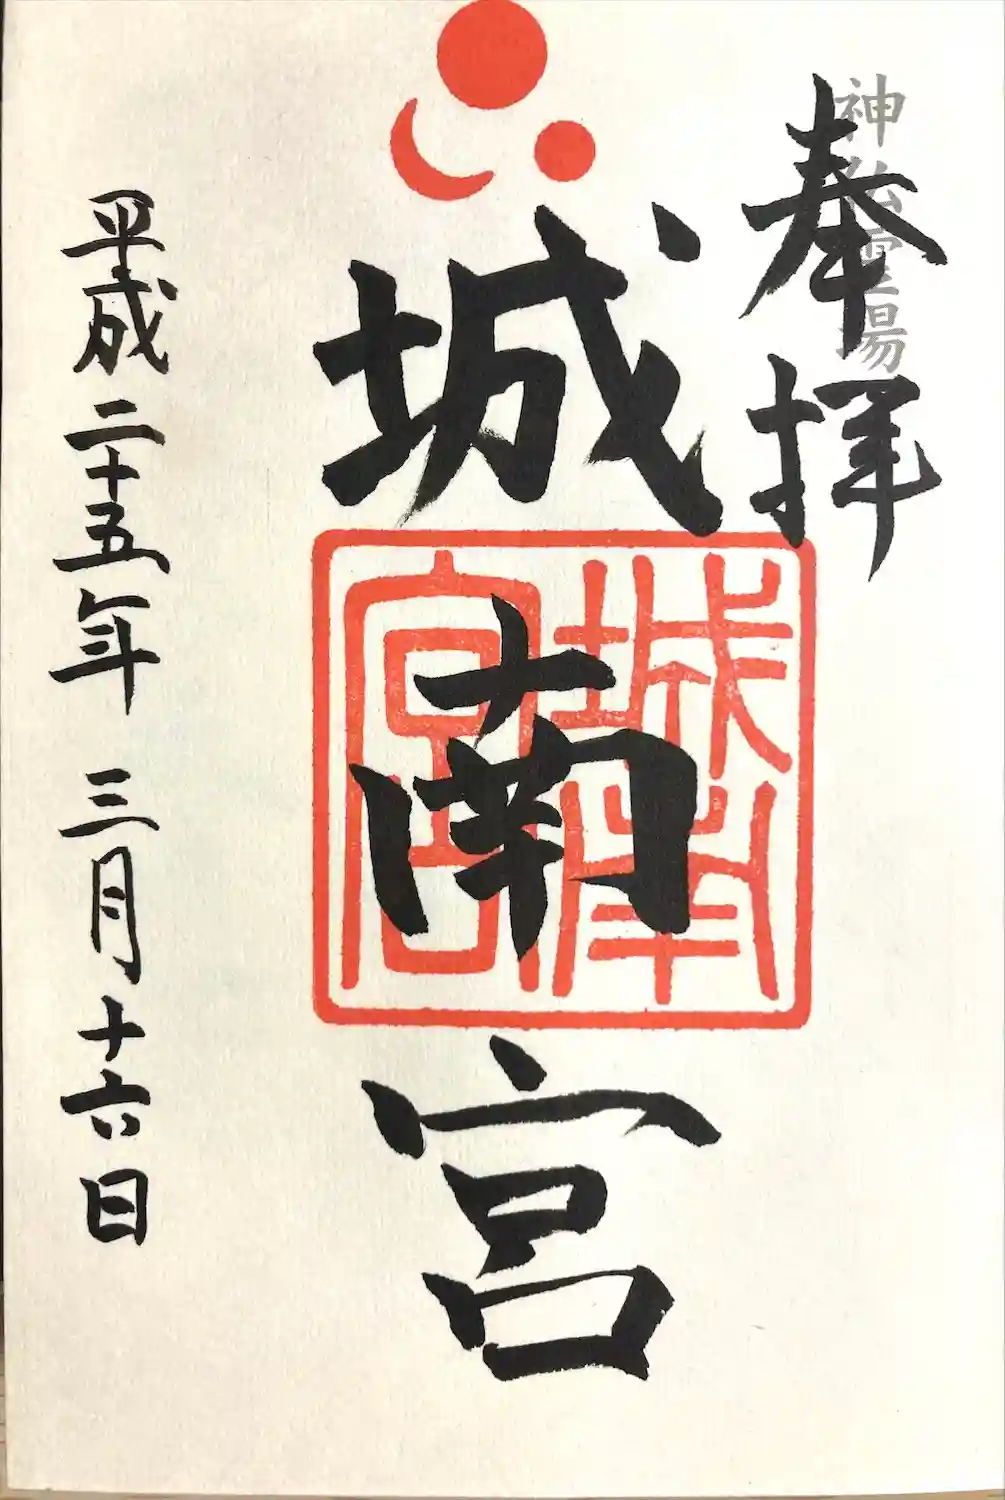 神仏霊場
奉拝
城南宮
城南宮
平成二十五年 三月十六日